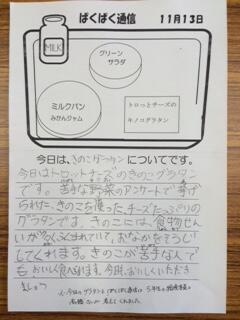 ぱくぱく通信 11月13日
MILK
グリーン
サラダ
ミルクパン
みかんジャム
トロっとチーズの
キノコグラタン
今日は、きのこグラタンについてです。
今日はトロットチーズのきのこグラタン
です。苦手な野菜のアンケートで挙げ
られた、きのこを使った、チーズたっぷりの
グラタンです。きのこには、食物せん
いがふくまれていて、おなかをそうじ
してくれます。きのこが苦手な人で
もおいしく食べれます。今日も、おいしくいただき
ましょう